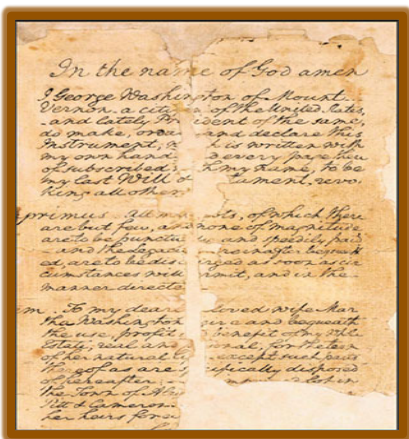 In the name of God amen
I George Washington of Mount
Vernon, a citizen of the United States,
and lately Pr ident of the same,
do make, orda and declare this
Instrument, w h is written with
my own hand every page there
of subscribed my name, to be
my last Will & tament, revo
king all other
primus. All my bts, of which there
are but few, and none of magnitude
are to be punctua and speedily paid
and the Legacies hereinafter bequeath
ed, are to be disc arged as soon as cir
cumstances will rmit, and in the
manner directe
m. To my dear loved wife Mar
tha Washington and bequeath
the use, profit benefit of my whole
Estate, real and onal, for the term
of her natural li except such parts
thereof as are s ifically disposed
of hereafter lot in
the Town of Alex
Pitt & Cameron
her heirs fore